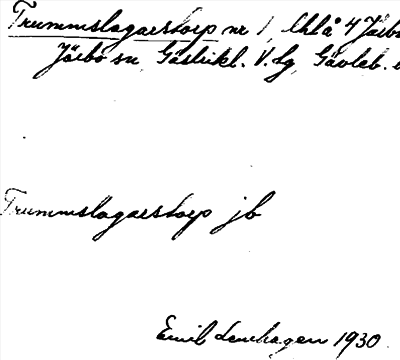 Trummslagarstorp nr 1, Ohlå 4 Järbo
Järbo sn, Gästrikl. V. tg, Gävleb.
Trummslagarstorp jb
Emil Lenhagen 1930